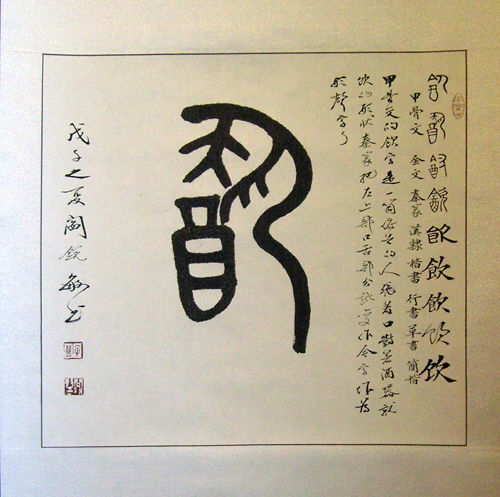 飲飲飲飲飲飲飲飲饮
甲骨文 金文 秦篆 漢隸 楷書 行書 草書 簡楷
甲骨文的飲字是一個俯首的人張着口對着酒器就
飲的形狀秦篆把左上部口舌部分訛變作今字作為
形聲字了
飲
戊子之夏閻銳敏書